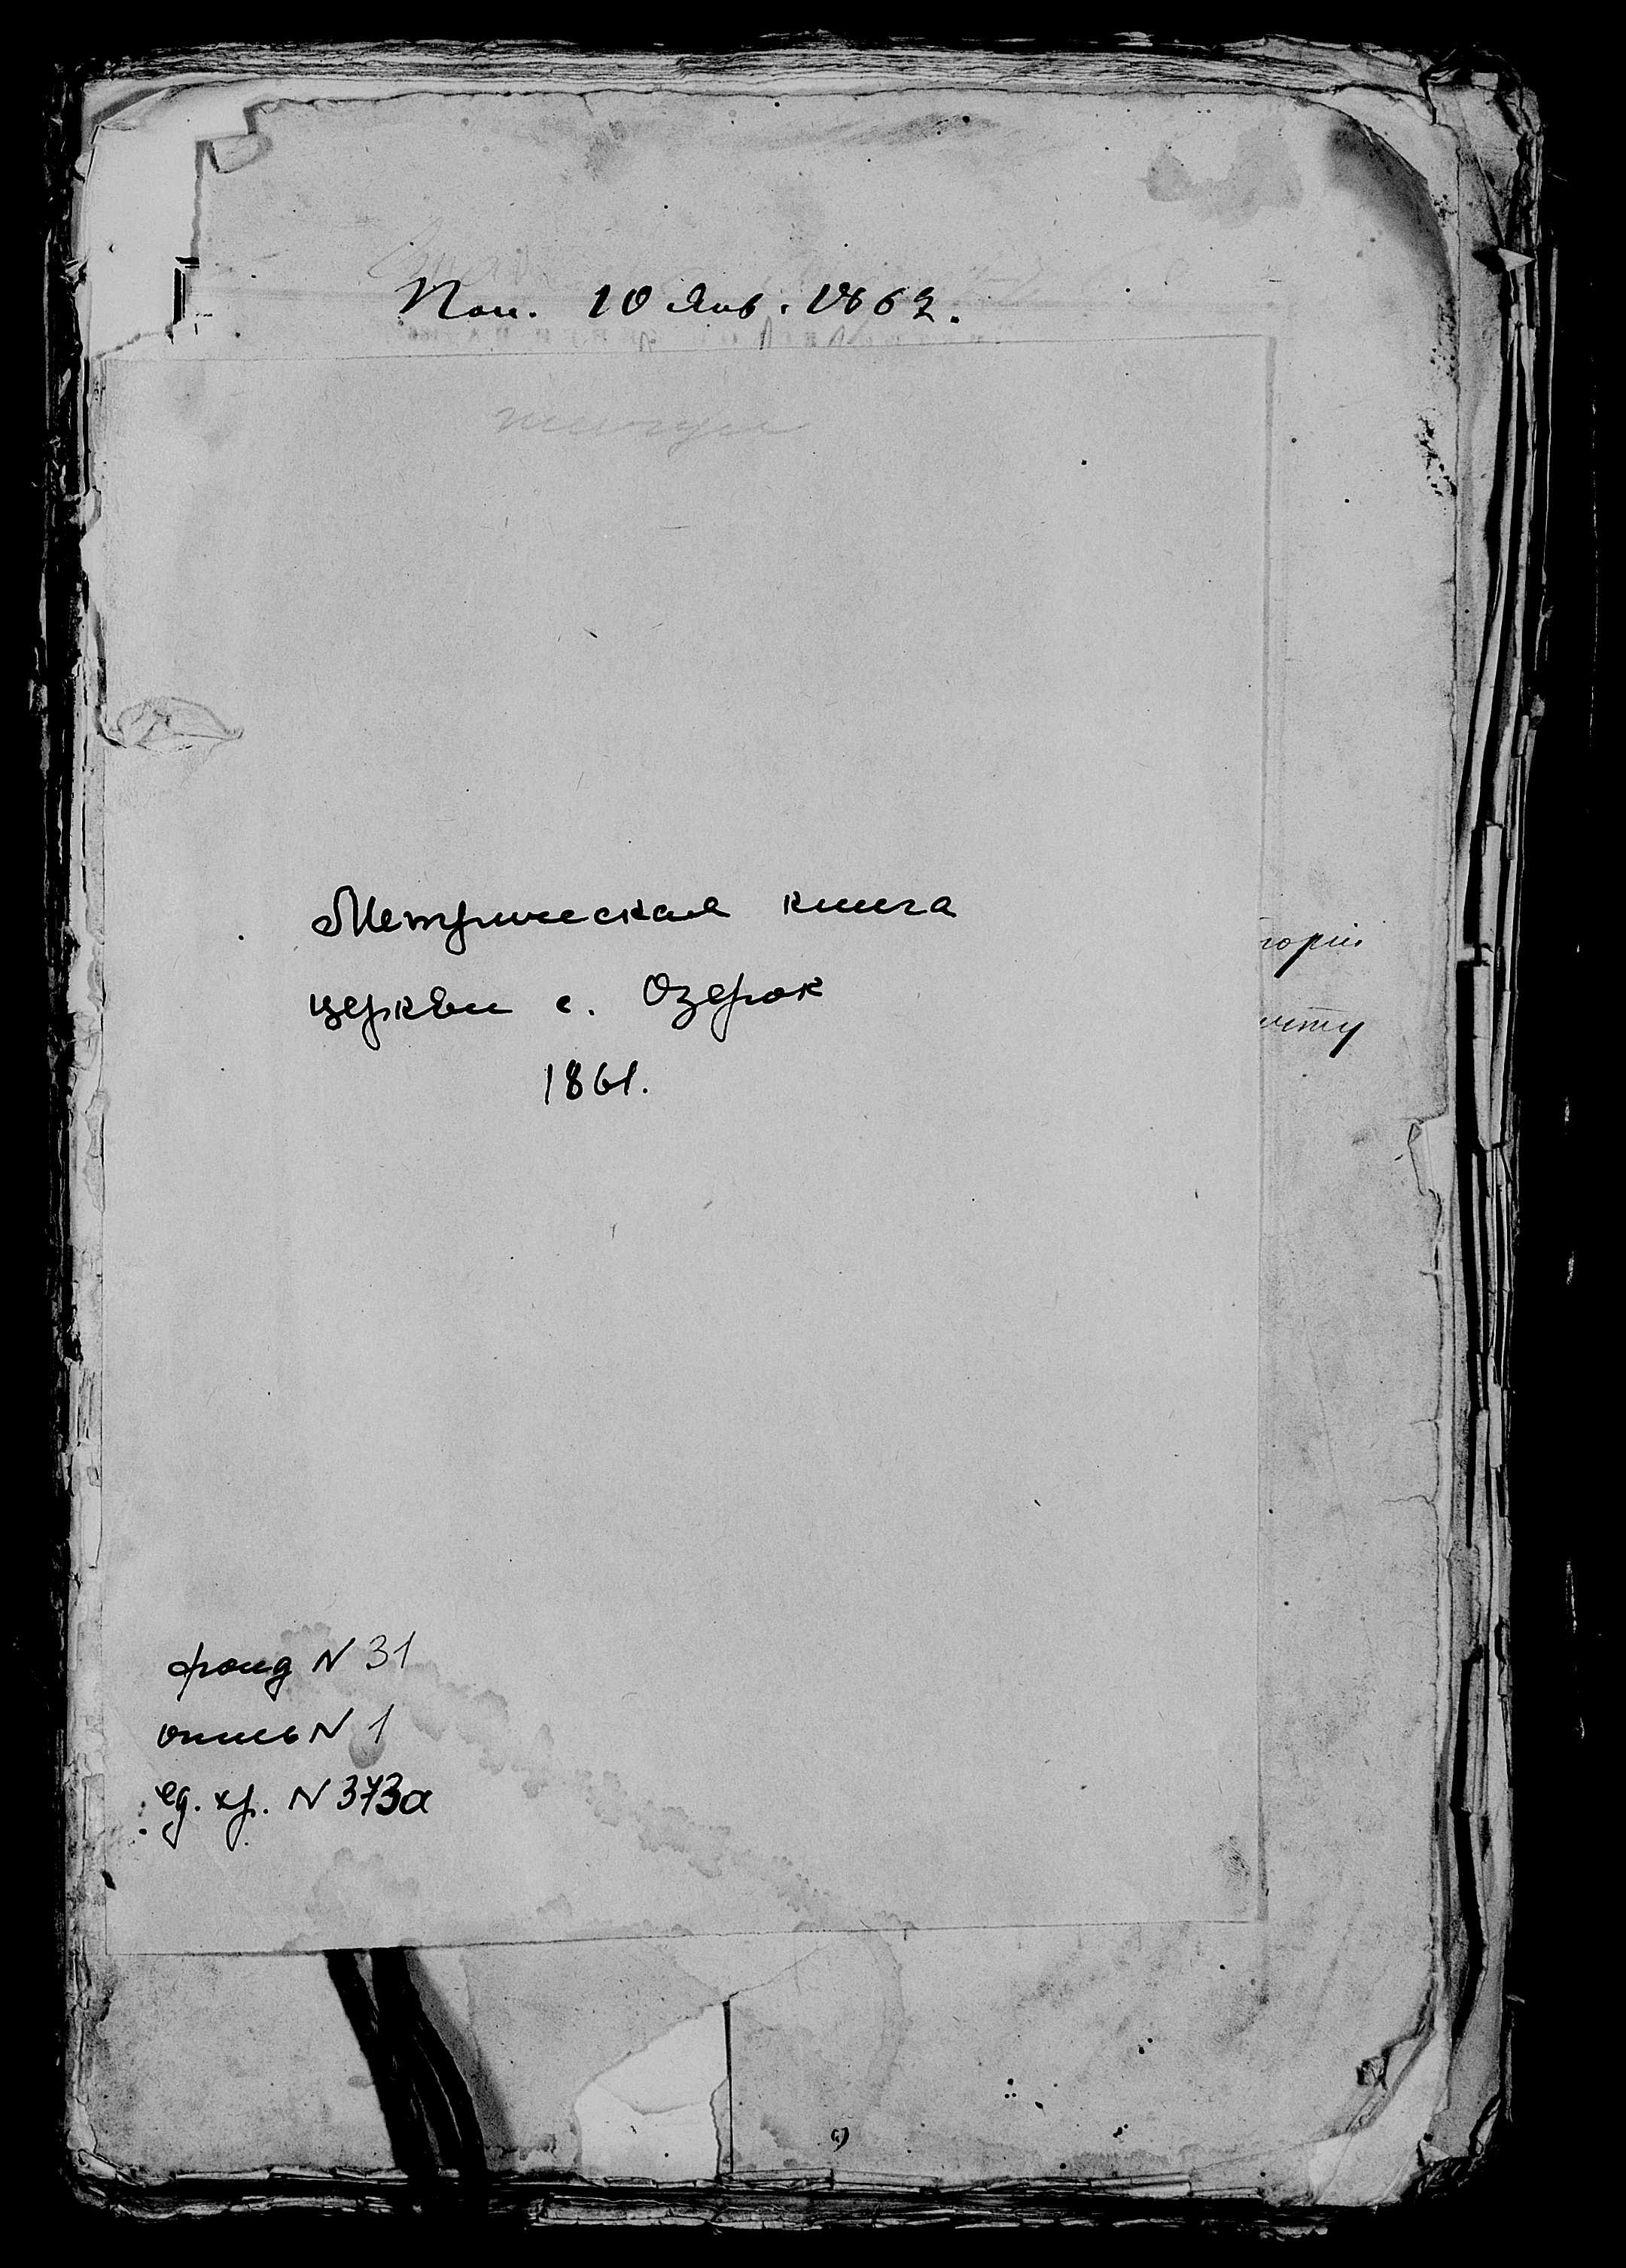 Пол. 10 Янв. 1862.
Метрическая книга
церкви с. Озерок
1861.
торіи
фонд N 31
опись N 1
ед. хр. N 373а